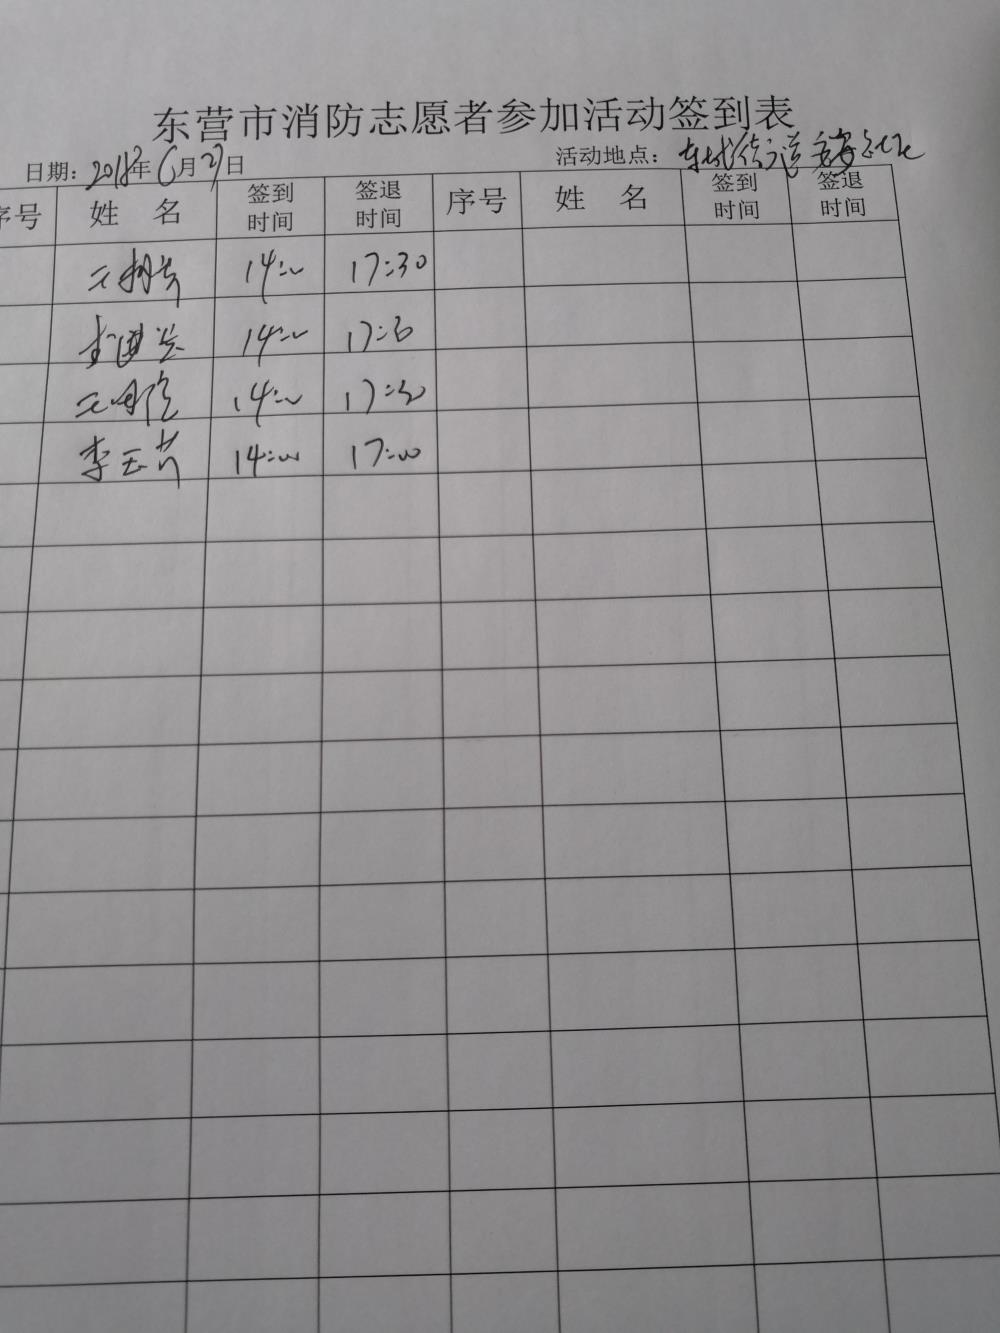 东营市消防志愿者参加活动签到表
日期：2018年6月27日 活动地点：东城街道
序号 姓名 签到时间 签退时间 序号 姓名 签到时间 签退时间
14:00 17:30
14:00 17:30
14:00 17:30
李玉芳 14:00 17:00